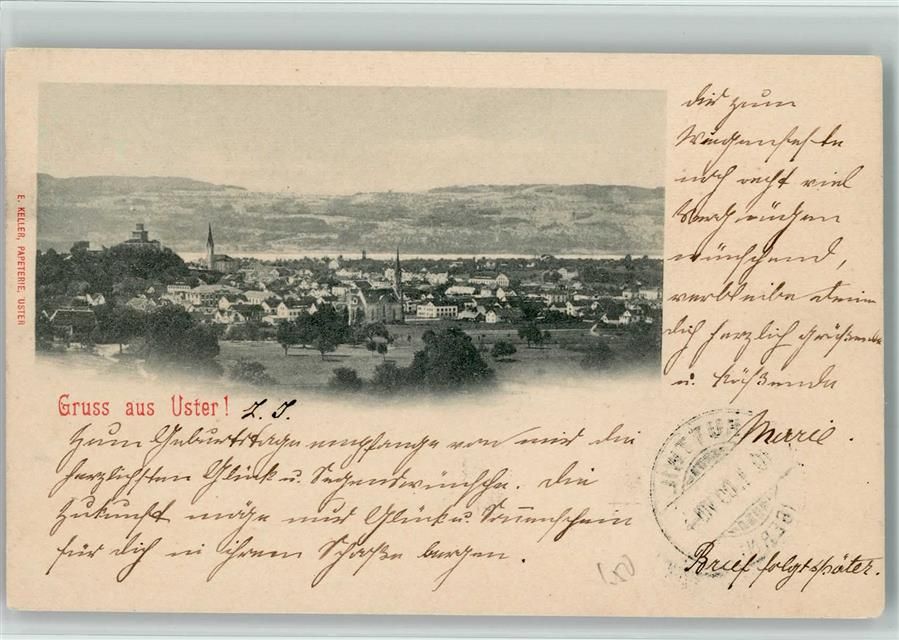 E. KELLER, PAPETERIE, USTER
Gruss aus Uster!
Zum Geburtstage empfange von mir die
herzlichsten Glück u. Segenswünsche. Die
Zukunft möge nur Glück u. Sonnenschein
für dich in ihrem Schoße bergen.
dir zum
noch recht viel
Vergnügen
wünschend,
verbleibe deine
dich herzlich grüßende
u. küßende
Marie.
Brief folgt später.